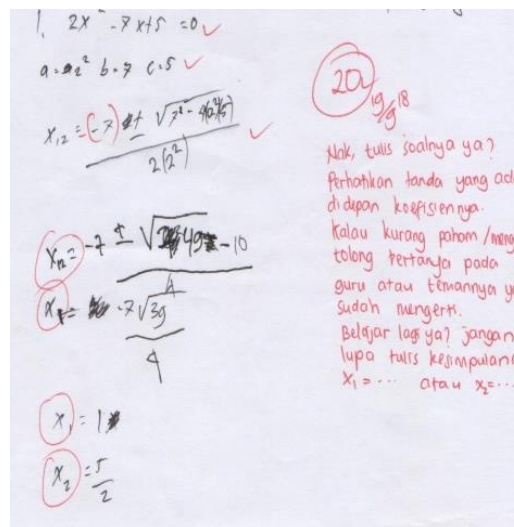 1. 2x² - 7x+5 = 0
a = 2² b = 7 c = 5
x₁₂ = (-7) ± √7² - 4(2²)(5)
2(2²)
x₁₂ = -7 ± √49 - 10
4
x = -7 √39
4
x₁ = 1
x₂ = 5/2
20
19/9 18
Nak, tulis soalnya ya?
Perhatikan tanda yang ad
didepan koefisiennya.
Kalau kurang paham / meng
tolong bertanya pada
guru atau temannya y
sudah mengerti.
Belajar lagi ya? jangan
lupa tulis kesimpulan
x₁ = ... atau x₂ = ...